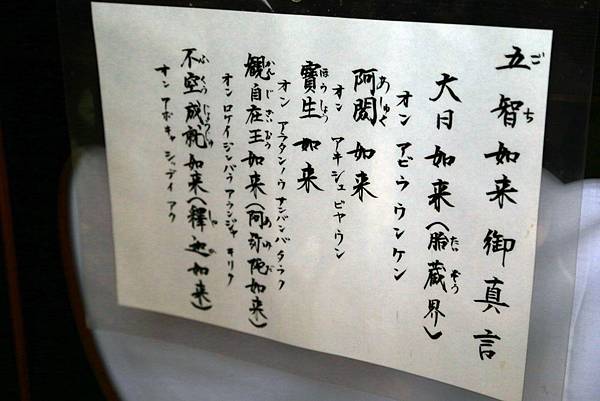 五智如来御真言
大日如来(胎蔵界)
オン アビラ ウンケン
阿閦如来
オン アキシュビヤ ウン
寶生如来
オン アラタンノウ サンバンバ タラク
観自在王如来(阿弥陀如来)
オン ロケイジンバラ アランジャ キリク
不空成就如来(釋迦如来)
オン アボキャ シッデイ アク